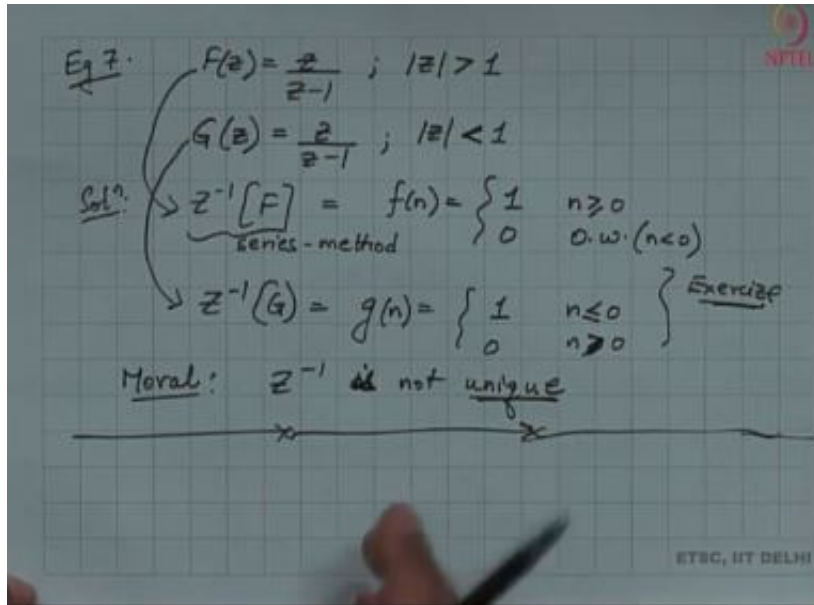 Eg 7. F(z) = z/(z-1) ; |z| > 1
G(z) = z/(z-1) ; |z| < 1
Solⁿ: Z⁻¹[F] = f(n) = { 1 n ≥ 0
0 o.w. (n<0)
series-method
Z⁻¹(G) = g(n) = { 1 n ≤ 0
0 n > 0 } Exercise
Moral: Z⁻¹ is not unique
NPTEL
ETSC, IIT DELHI